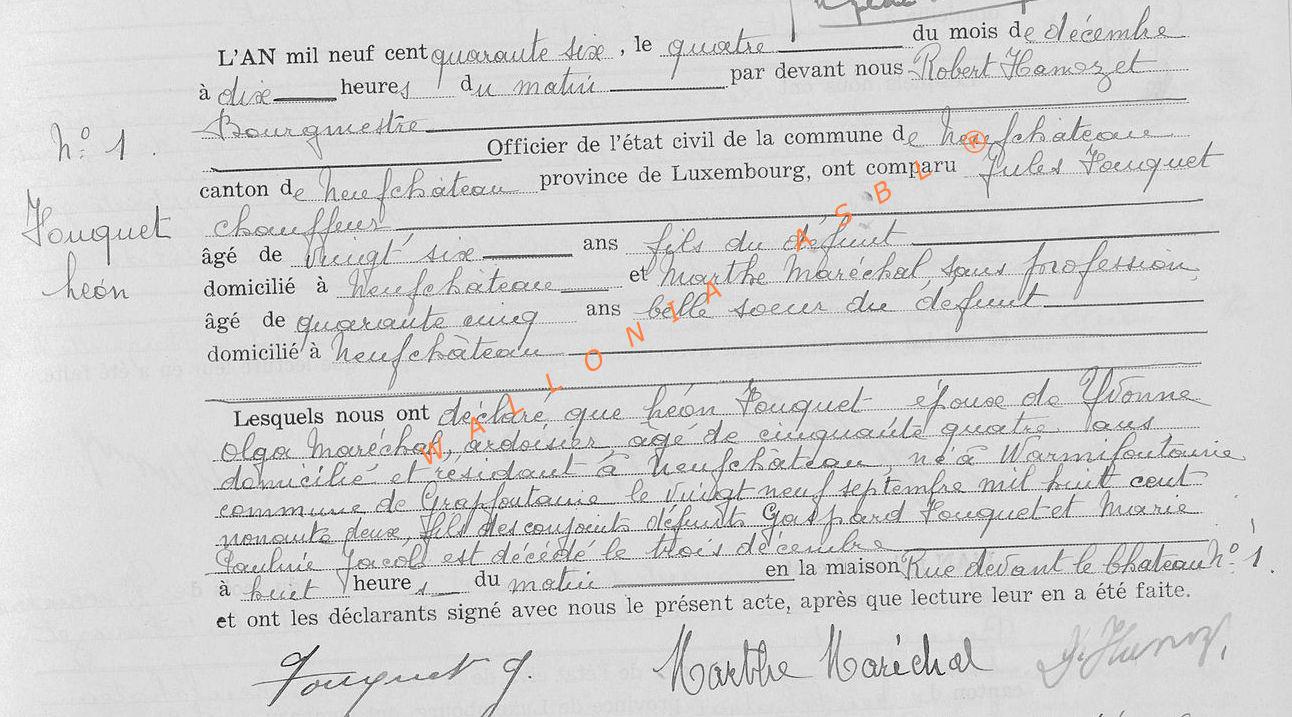 L'AN mil neuf cent quarante six, le quatre du mois de décembre
à dix heures du matin par devant nous Robert Hamozet
Bourgmestre
N° 1.
Officier de l'état civil de la commune de Neufchâteau
canton de Neufchâteau province de Luxembourg, ont comparu Jules Fouquet
Fouquet
Léon
chauffeur
âgé de vingt six ans fils du défunt
domicilié à Neufchâteau et Marthe Maréchal, sans profession,
âgé de quarante cinq ans belle soeur du défunt
domicilié à Neufchâteau
Lesquels nous ont déclaré que Léon Fouquet époux de Yvonne
Olga Maréchal, ardoisier agé de cinquante quatre ans
domicilié et résidant à Neufchâteau, né à Warmifontaine
commune de Grapfontaine le vingt neuf septembre mil huit cent
nonante deux, fils des conjoints défunts Gaspard Fouquet et Marie
Pauline Jacob est décédé le trois décembre
à huit heures du matin en la maison Rue devant le Château N° 1.
et ont les déclarants signé avec nous le présent acte, après que lecture leur en a été faite.
Fouquet J. Marthe Maréchal
WALLONIA ASBL ®